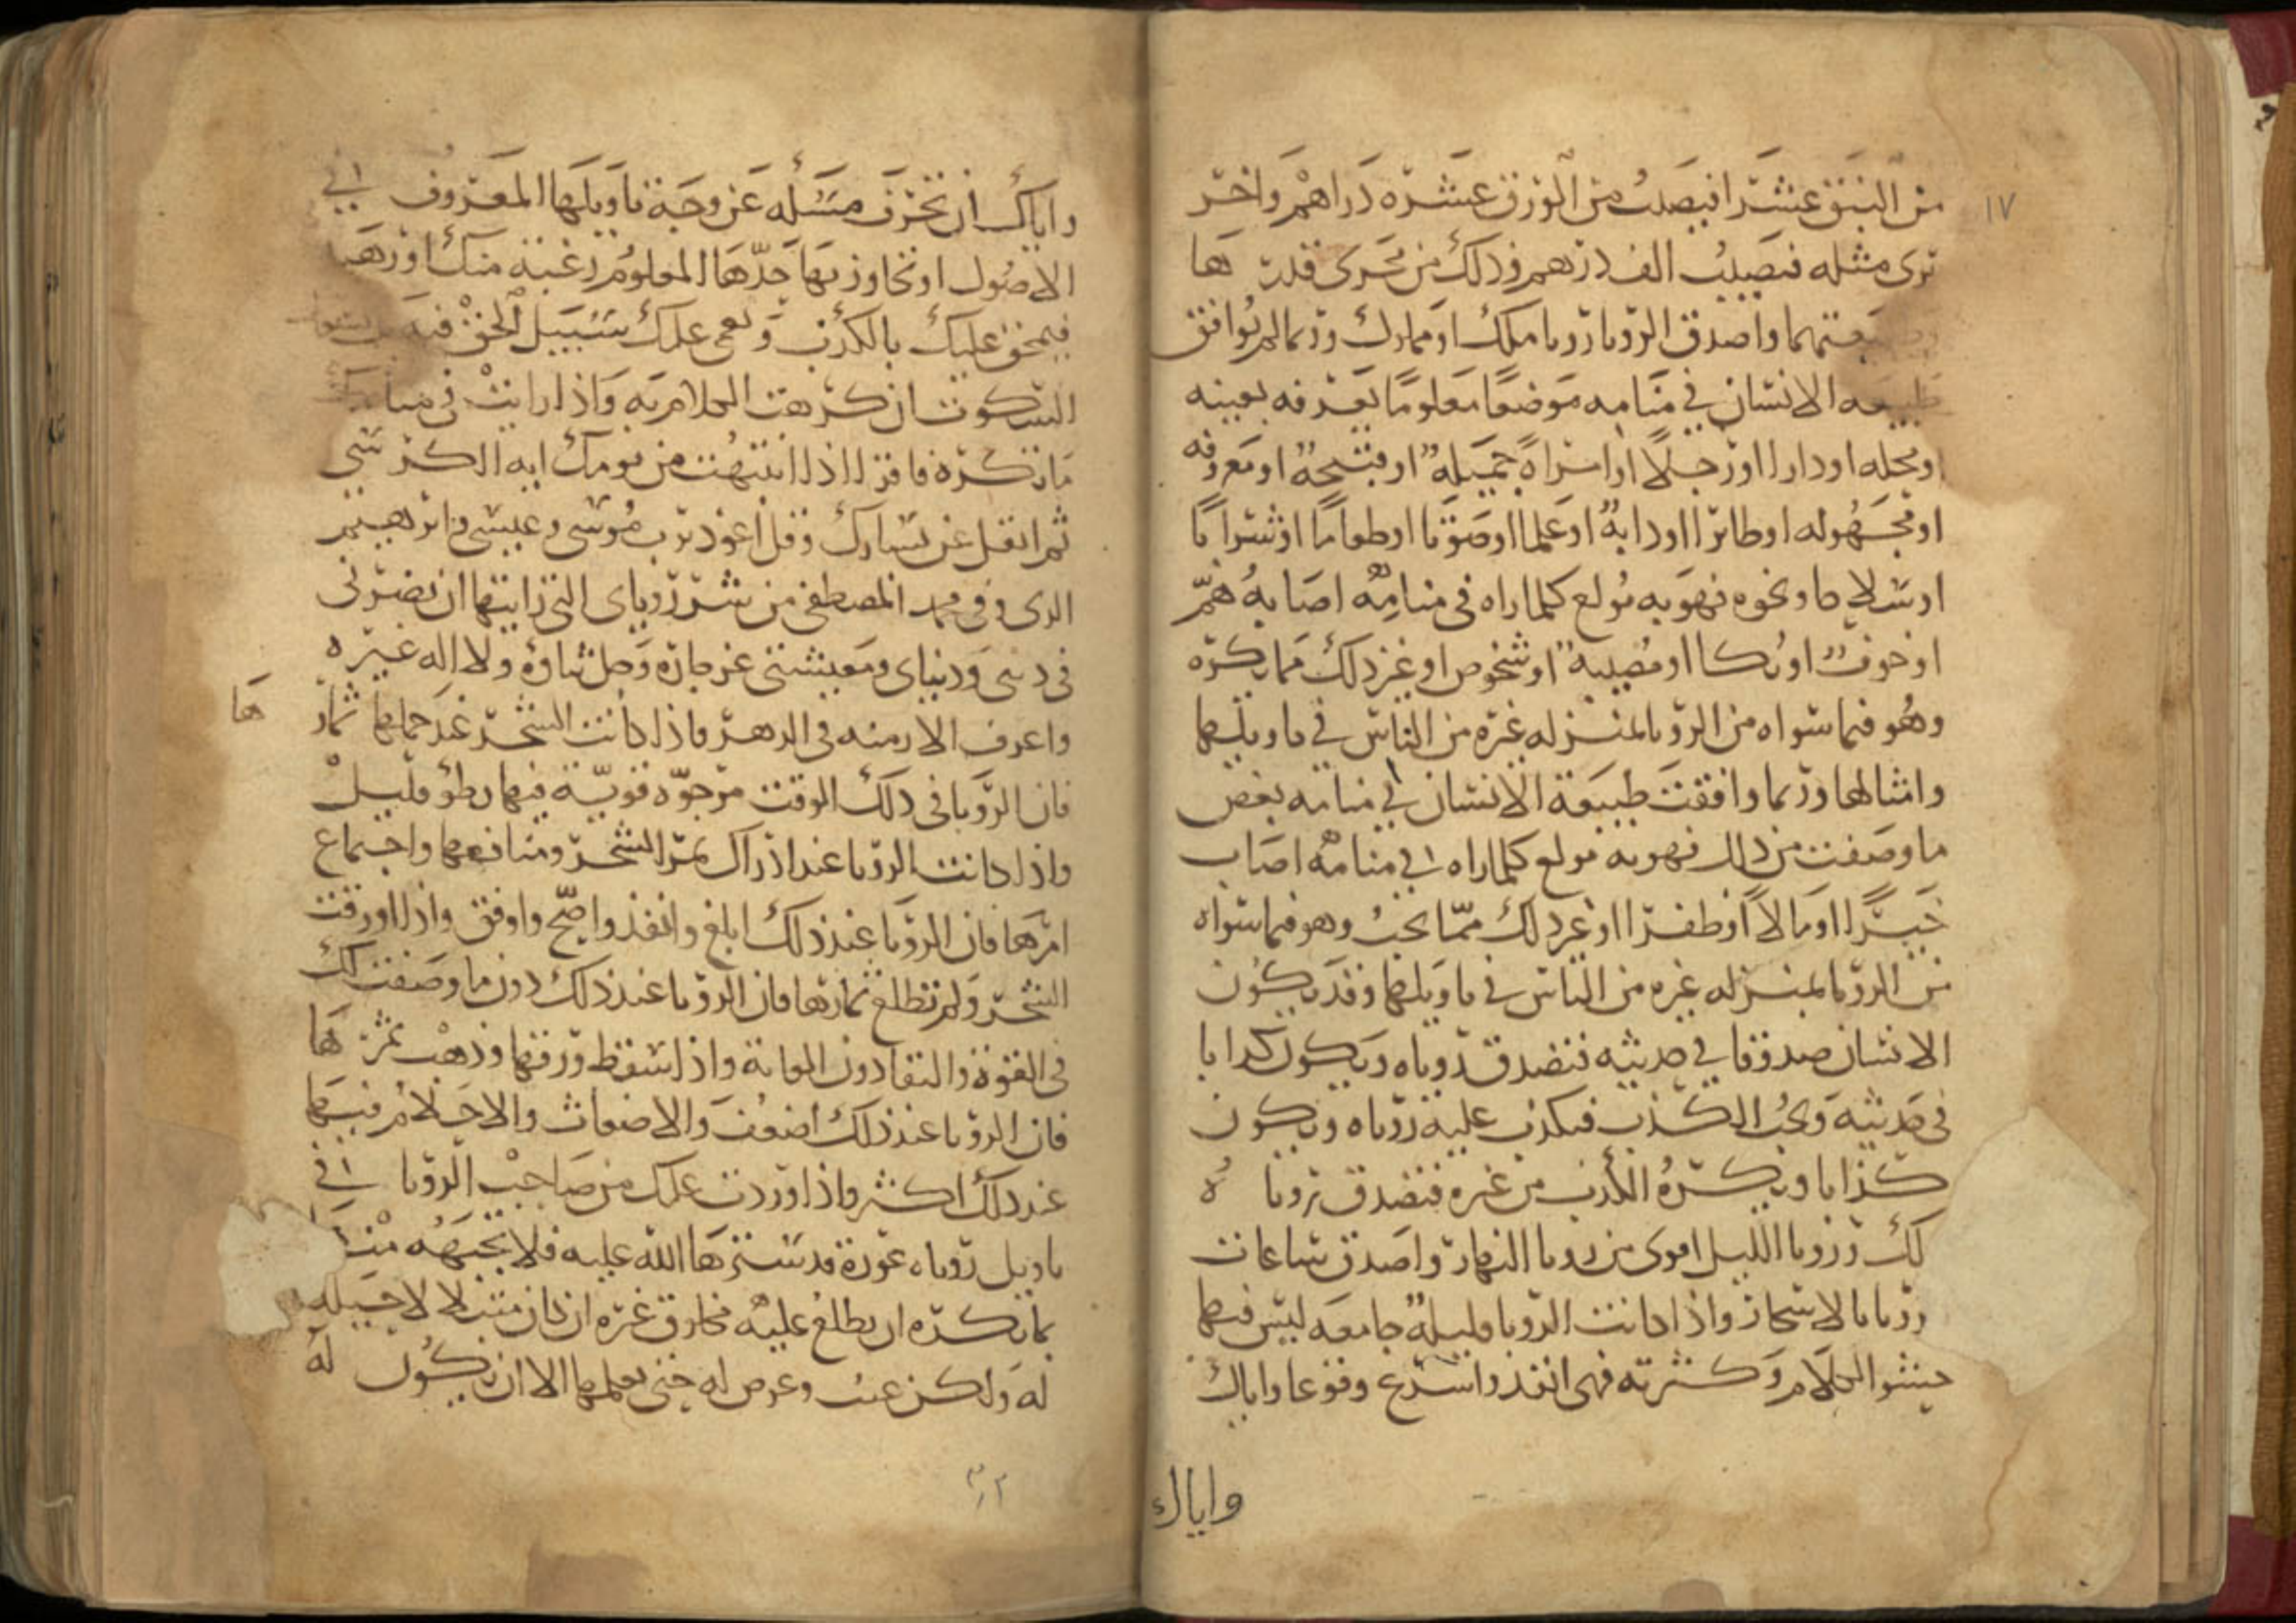 ١٧
من النبق عشرا فيصيب من الورق عشرة دراهم واخر
ترى مثله فيصيب الف درهم وذلك من مجرى قدر ها
واصدق الرويا رويا ملك او مملوك وربما لم توافق
طبيعه الانسان في منامه موضعا معلوما يعرفه بعينه
او محله او دارا او رجلا او امراة جميله او قبيحة او معروفه
او مجهوله او طائرا او دابة او علما او صوتا او طعاما او شرابا
او سلاحا ونحوه فهو به مولع كلما راه في منامه اصابه هم
او خوف او بكا او مصيبة او شخوص او غير ذلك مما يكره
وهو فيما سواه من الرويا بمنزله غيره من الناس في تاويلها
وامثالها وربما وافقت طبيعة الانسان في منامه بعض
ما وصفت من ذلك فهو به مولع كلما راه في منامه اصاب
خيرا او مالا او ظفرا او غير ذلك مما يحب وهو فيما سواه
من الرويا بمنزله غيره من الناس في تاويلها وقد يكون
الانسان صدوقا في حديثه فتصدق روياه ويكون كذابا
في حديثه ويحب الكذب فيكذب عليه روياه ويكون
كذابا ويكره الكذب من غيره فتصدق رويا ه
لك ورويا الليل اقوى من رويا النهار واصدق ساعات
رويا بالاسحار واذا كانت الرويا قليلة جامعه ليس فيها
حشو الكلام وكثرته فهى انفذ واسرع وقوعا واياك
واياك
واياك ان تحرف مسئله عن وجه تاويلها المعروف في
الاصول او تجاوز بها حدها المعلوم رغبة منك او رهبة
فيحق عليك بالكذب ويعمى عليك سبيل الحق فيه
السكوت ان كرهت الكلام به واذا رايت في منامك
ما تكره فاقرا اذا انتبهت من نومك اية الكرسي
ثم اتفل عن يسارك وقل اعوذ برب موسى وعيسى وابرهيم
الذي وفى محمد المصطفى من شر روياى التي رايتها ان تضرني
في ديني ودنياى ومعيشتي عز جاره وجل ثناوه ولا اله غيره
واعرف الازمنه في الدهر فاذا كانت الشجر عند حملها ثمار
ها
فان الرويا في ذلك الوقت مرجوه قوية فيها بطؤ قليل
واذا كانت الرويا عند ادراك ثمر الشجر ومنافعها واجتماع
امرها فان الرويا عند ذلك ابلغ وانفذ واصح واوفق واذا اورقت
الشجر ولم تطلع ثمارها فان الرويا عند ذلك دون ما وصفت لك
في القوة والبقا دون الغاية واذا سقط ورقها وذهب ثمر ها
فان الرويا عند ذلك اضعف والاضغاث والاحلام فيها
عند ذلك اكثر واذا وردت عليك من صاحب الرويا في
تاويل روياه عورة قد سترها الله عليه فلا تجبهه منها
بما يكره ان يطلع عليه مخلوق غيره ان كان مبتلا لا حيله
له ولكن عب وعرض له حتى يعلمها الا ان يكون له